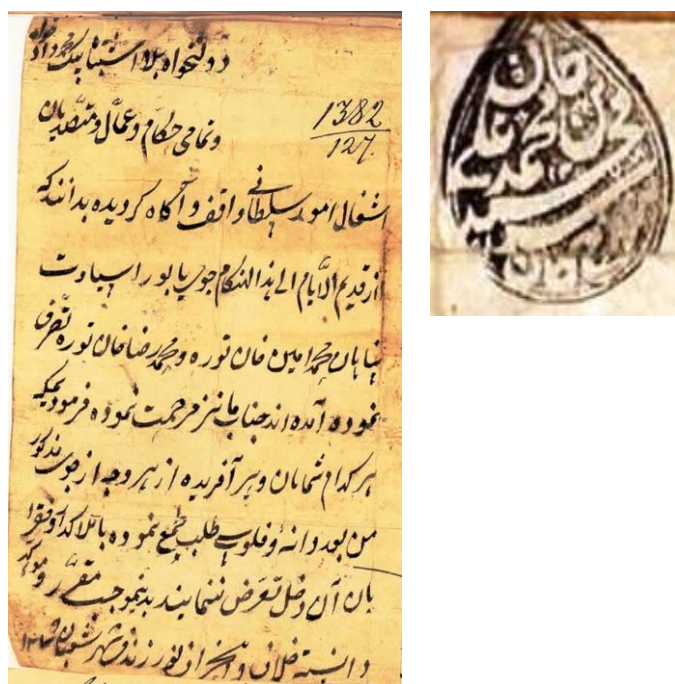 دولتخواه بلا اشتباه بیک محمد دادخواه
وتمامی حکام وعمال ومتصدیان
1382
127
اشغال امور سلطانی واقف و آگاه کردیده بدانند که
از قدیم الایام الی هذا الهنکام جوی پابور را سیادت
پناهان محمد امین خان توره و محمد رضا خان توره تصرف
نموده آمده اند جناب ما نیز مرحمت نموده فرمودیمکه
هر کدام شمایان وهر آفریده از هر وجه از جوی مذکور
من بعد دانه و فلوسی طلب طمع نموده باملاکدار وفقرا
یان آن دخل تعرض ننمایند بدینموجب مقرر و موکد
دانسته خلاف و انحراف نورزند فی شهر شعبان
محمد علی خان
سید